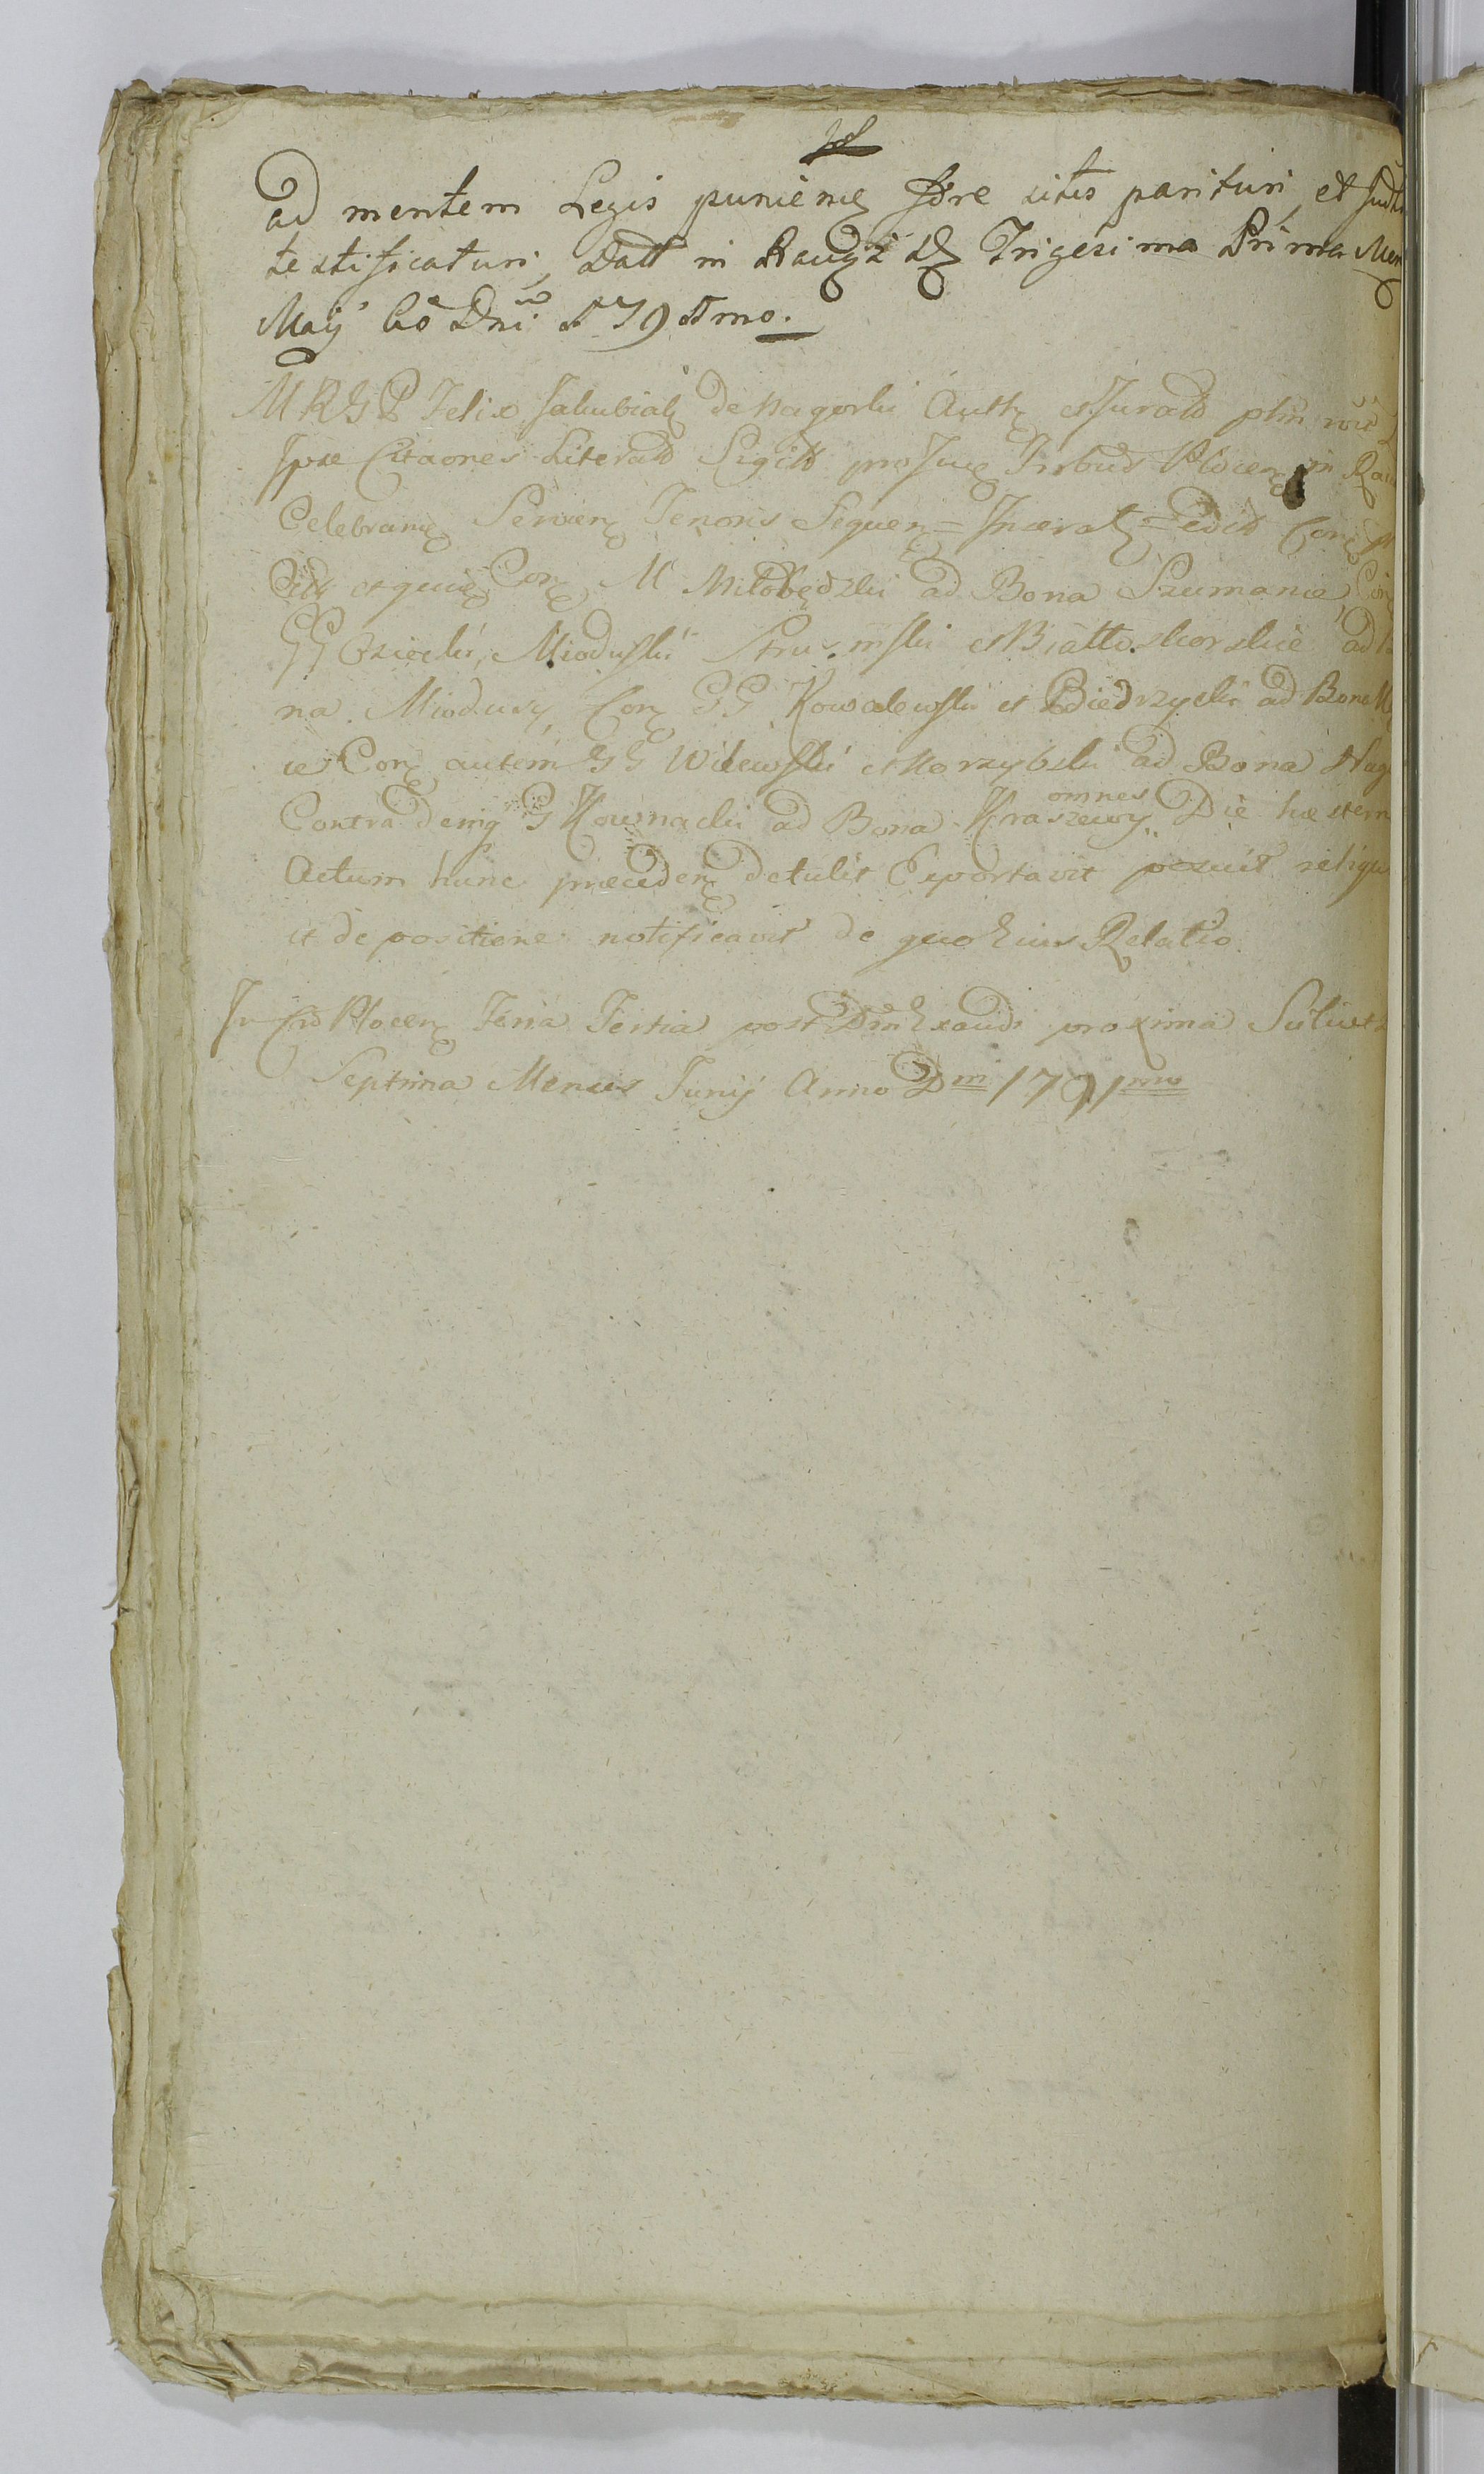 ad mentem Legis punieng Jdre sitis parituri et Judtr
testificaturi, Datt in Raugz Dg Trigesima Prima Men
Maij Ao Dni 1791mo.
MRGP Felix Jakubiak de Nagorki Auth et Jurats phn
Ipse Citaones Literats Sigills pro Tribuds Plocen in Ra
Celebran Servien Tenoris Sequen = Incerat = edit Con
et quie Con M Miłobędzki ad Bona Szumanie Con
GG Osiecki, Mioduski et Białło.skorskie ad
na Mioduszy Con GG Kowalewski et Biedrzycki ad Bona
ie Con autem GG Wilewski et Korzybski ad Bona Nag
Contra deniq G Kownacki ad Bona Kraszewy omnes Die hestern
Actum hunc preceden detulit Exportavit posuit reliqu
et de positione notificavit de quo Eius Relatio
In Plocen Feria Tertia post Dm Exaudi proxima Scilicet
Septima Mensis Junij Anno Dni 1791mo